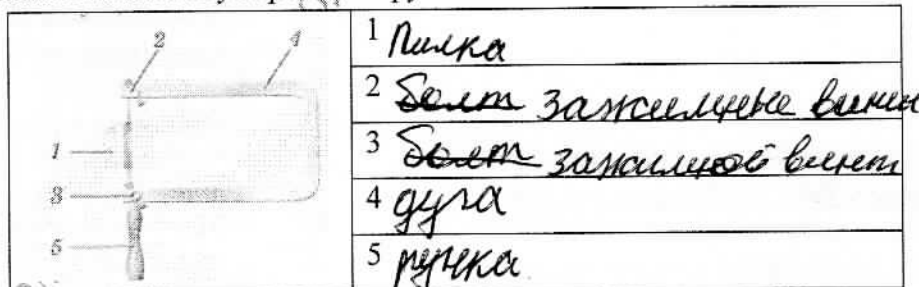 2
4
1
3
5
1 Пилка
2 ~~болт~~ зажимные винты
3 ~~болт~~ зажимной винт
4 дуга
5 ручка